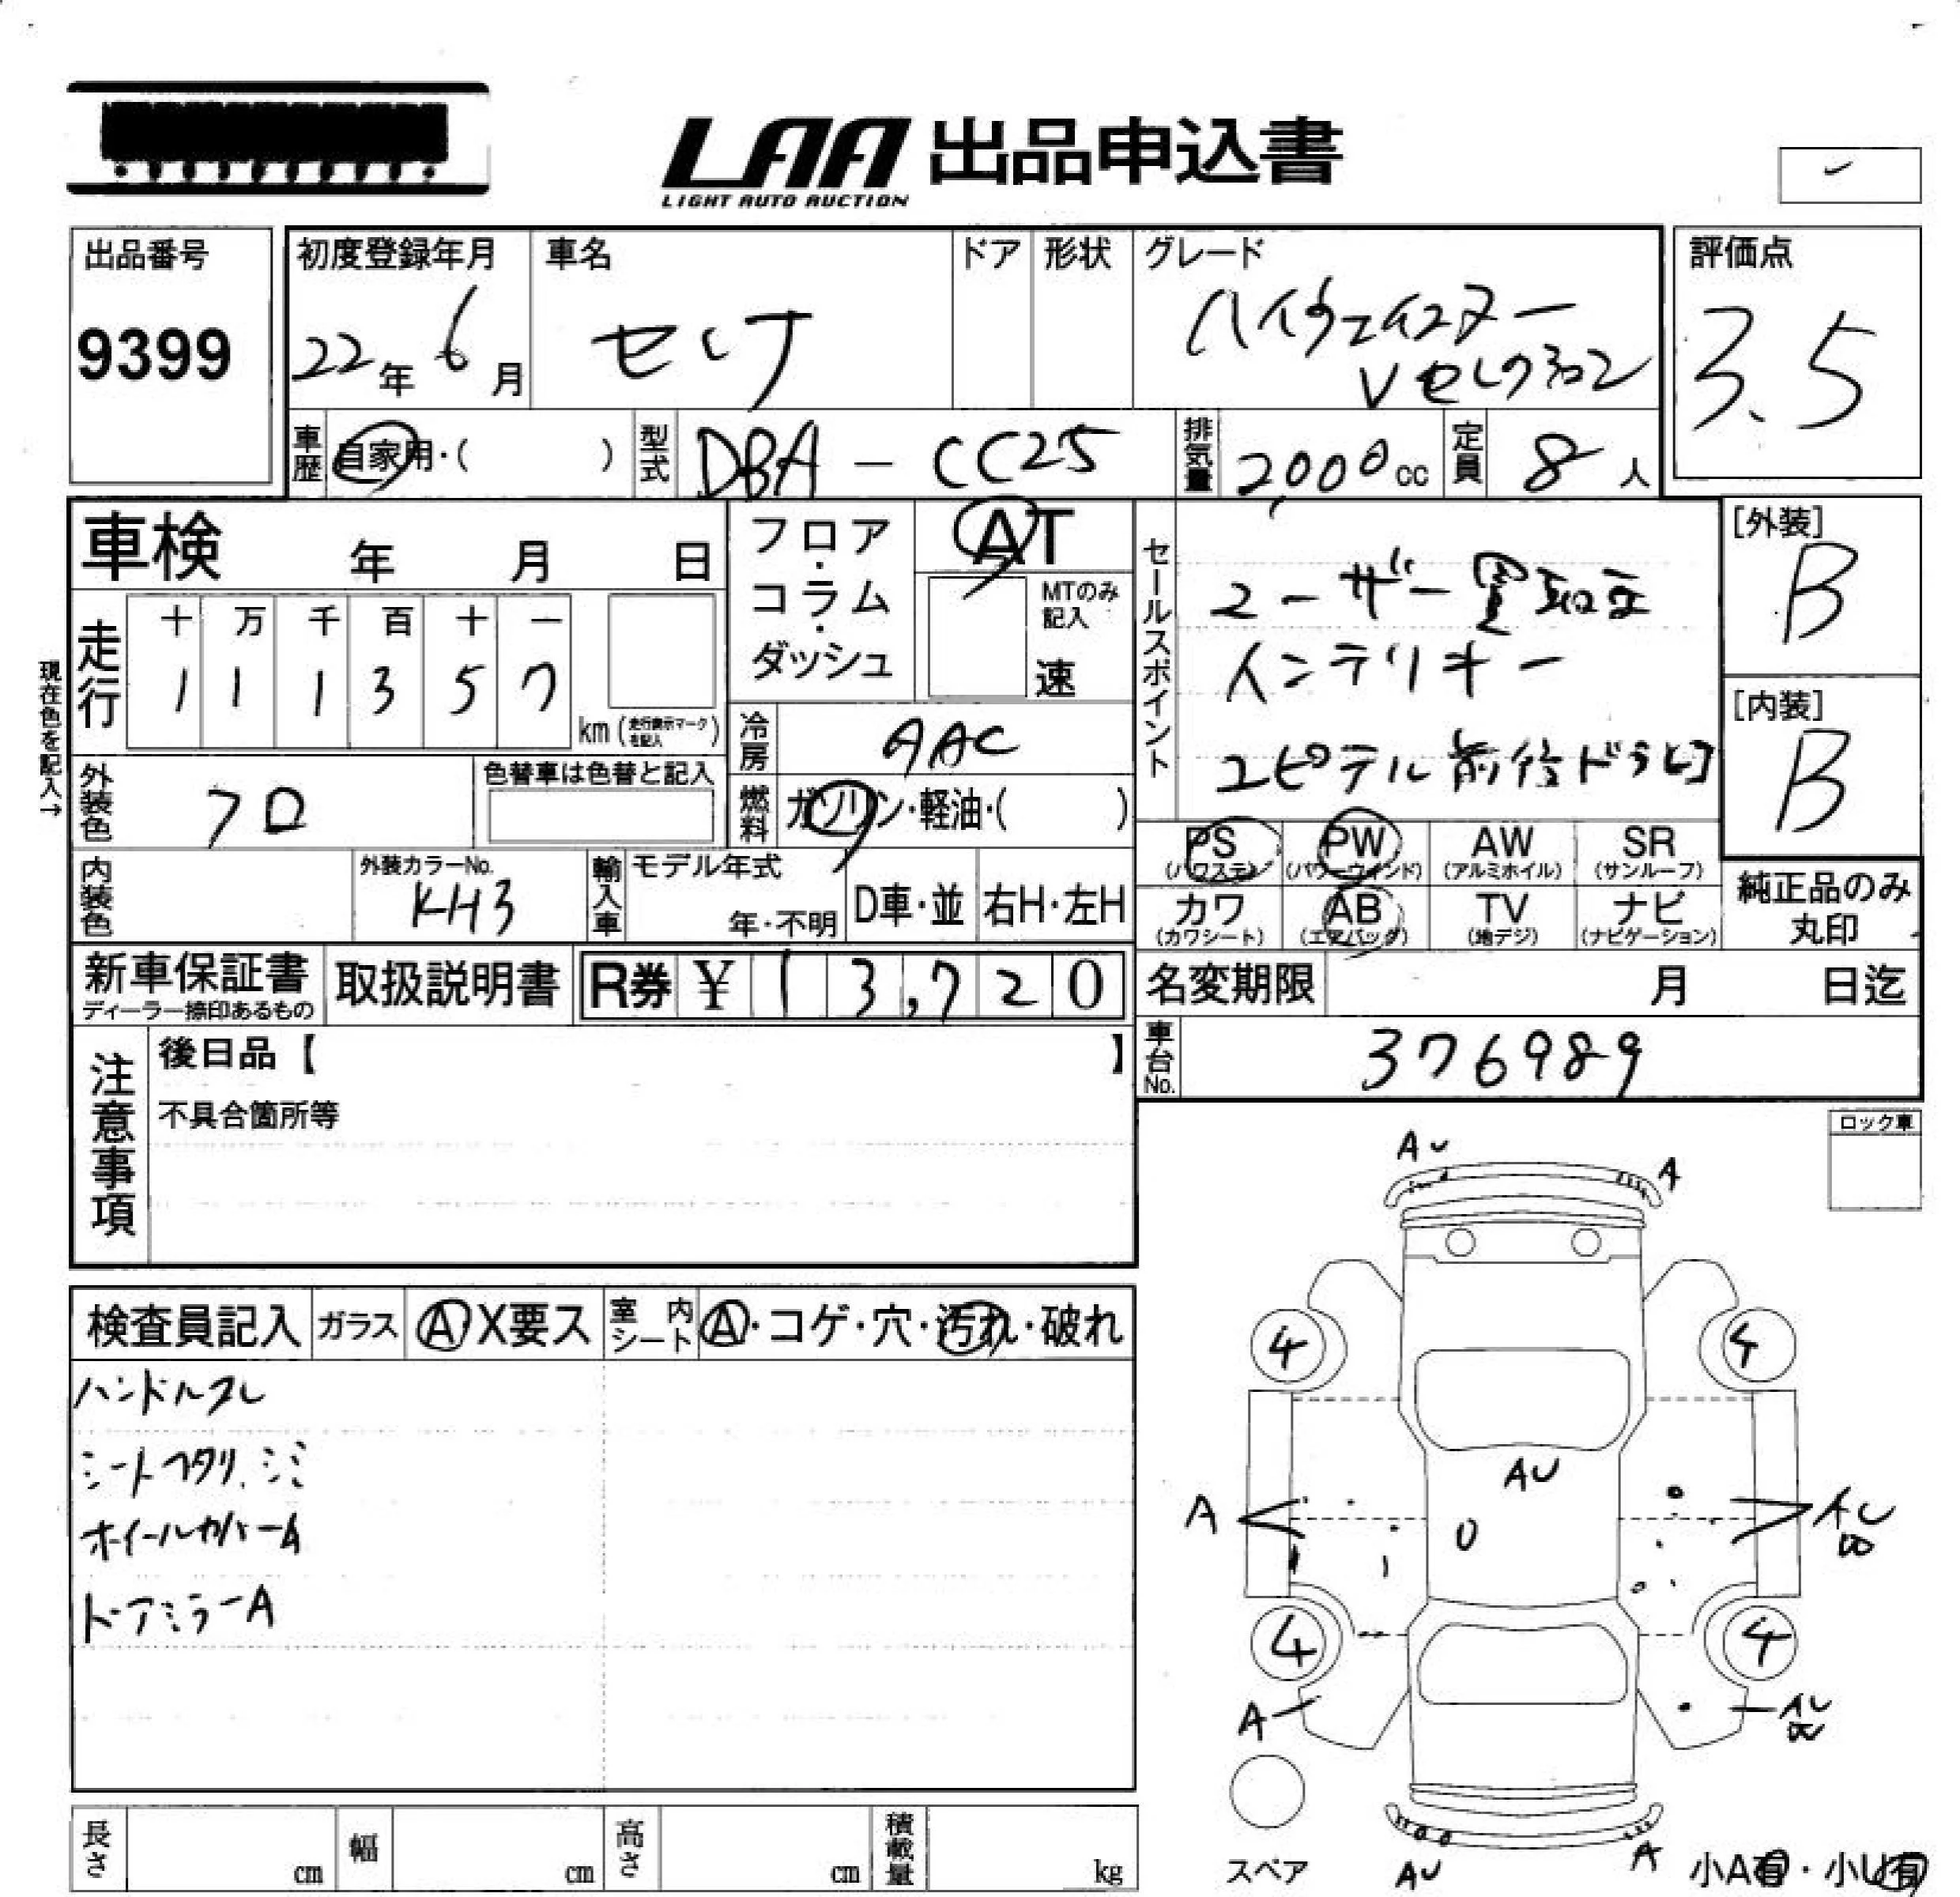 LAA 出品申込書
LIGHT AUTO AUCTION
出品番号
9399
初度登録年月
22年 6月
車名
セレナ
ドア
形状
グレード
ハイウェイスター
Vセレクション
評価点
3.5
車歴
自家用・( )
型式
DBA - CC25
排気量
2000cc
定員
8人
車検 年 月 日
走行
十 万 千 百 十 一
1 1 1 3 5 7
km (走行表示マークを記入)
現在色を記入→
フロア・コラム・ダッシュ
AT
MTのみ記入
速
冷房
AAC
燃料
ガソリン・軽油・( )
セールスポイント
ユーザー買取車
インテリキー
ユピテル前後ドラレコ
[外装]
B
[内装]
B
外装色
クロ
色替車は色替と記入
内装色
外装カラーNo.
KH3
輸入車
モデル年式
年・不明
D車・並
右H・左H
PS (パワステ)
PW (パワーウインド)
AW (アルミホイル)
SR (サンルーフ)
カワ (カワシート)
AB (エアバッグ)
TV (地デジ)
ナビ (ナビゲーション)
純正品のみ
丸印
新車保証書
ディーラー捺印あるもの
取扱説明書
R券 ¥ 13,720
名変期限 月 日迄
車台No.
376989
注意事項
後日品【 】
不具合箇所等
ロック車
検査員記入
ガラス
A X要ス
室内シート
A・コゲ・穴・汚れ・破れ
ハンドルスレ
シートヘタリ、シミ
ホイールカバーA
ドアミラーA
AU
A
4
4
AU
A
U
AU
4
4
A
AU
スペア
AU
A
小A有・小U有
長さ cm
幅 cm
高さ cm
積載量 kg